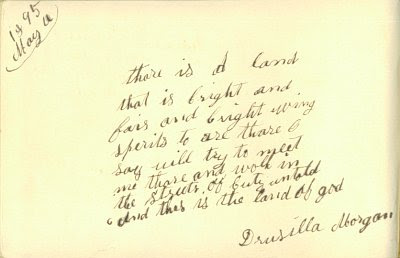 1895
May a
thare is a land
that is bright and
fair and bright wing
sperits to are thare O
say will try to meet
me thare and wolk in
the streets of buty untold
and this is the land of god
Drusilla Morgan